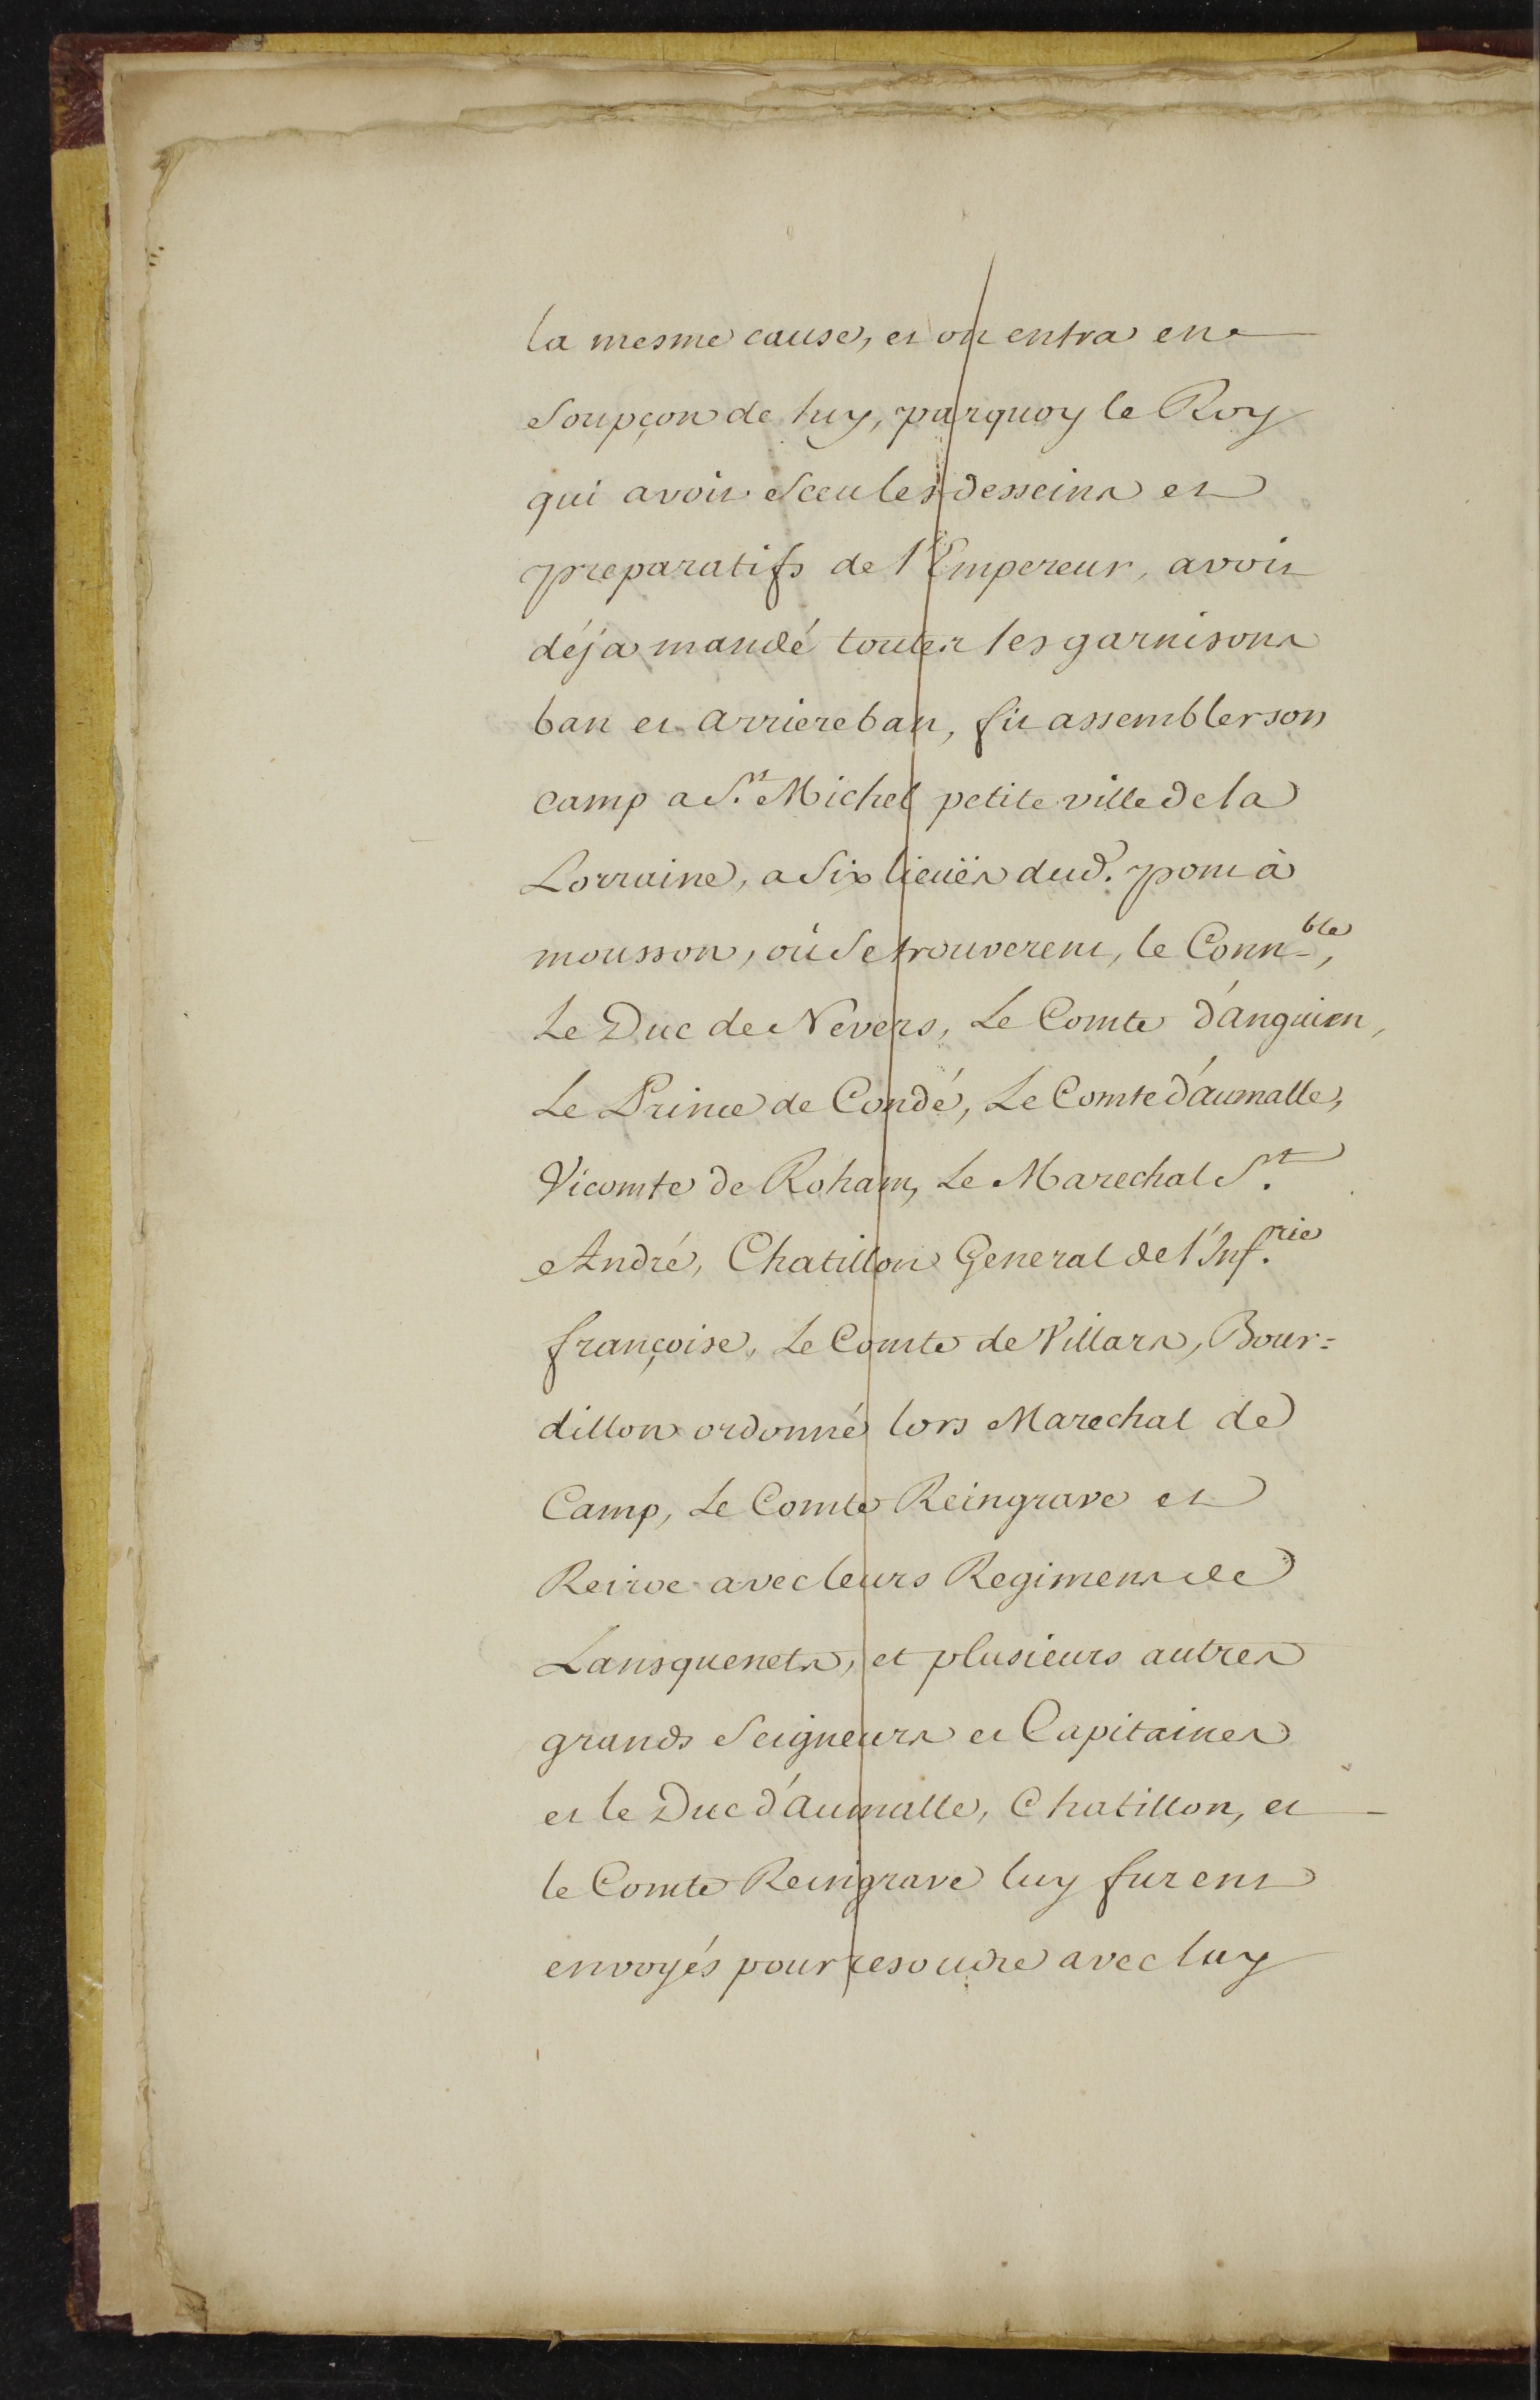 la mesme cause, et on entra en
soupçon de luy, parquoy le Roy
qui avoit sceu les desseins et
preparatifs de l'Empereur, avoit
déja mandé toutes les garnisons
ban et arriereban, fit assembler son
camp a S.t Michel petite ville de la
Lorraine, a six lieuës dud. pont à
mousson, où se trouverent, le Conn.ble,
Le Duc de Nevers, Le Comte d'anguien,
Le Prince de Condé, Le Comte d'aumalle,
Vicomte de Roham, Le Marechal S.t
André, Chatillon General de l'Inf.rie
françoise, Le Comte de Villars, Bour=
dillon ordonné lors Marechal de
Camp, Le Comte Reingrave et
Reiroc avec leurs Regimens de
Lansquenets, et plusieurs autres
grands Seigneurs et Capitaines
et le Duc d'aumalle, Chatillon, et
le Comte Reingrave luy furent
envoyés pour resoudre avec luy